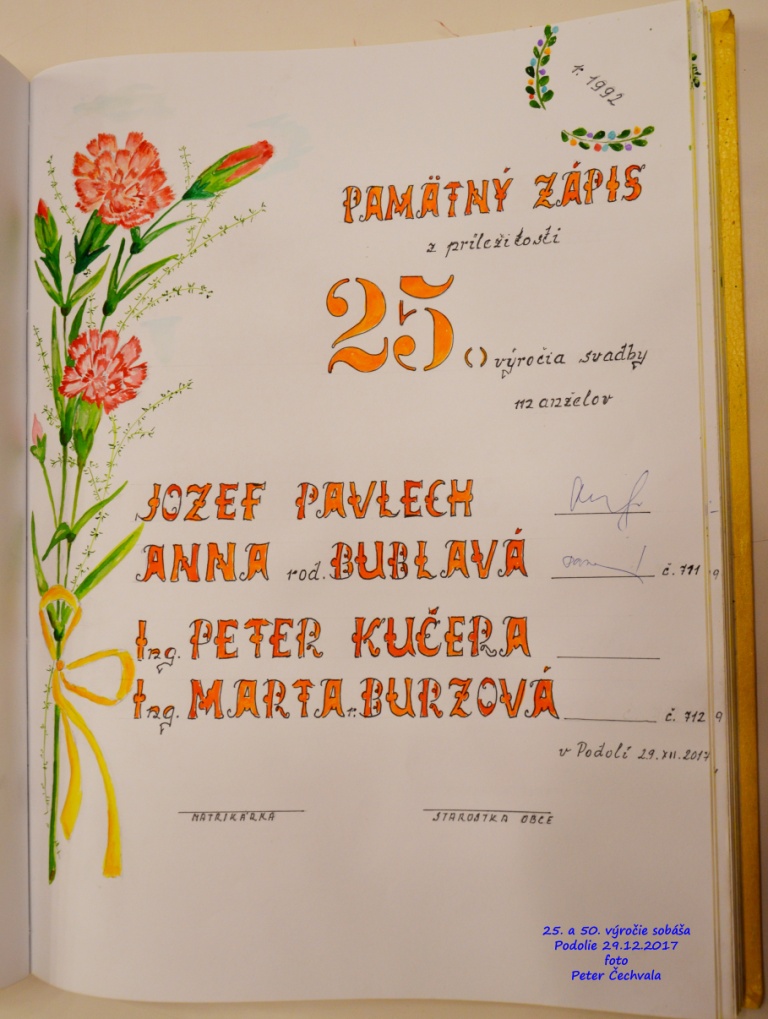 r. 1992
PAMÄTNÝ ZÁPIS
z príležitosti
25. výročia svadby
manželov
JOZEF PAVLECH
ANNA rod. BUBLAVÁ č. 711
Ing. PETER KUČERA
Ing. MARTA r. BURZOVÁ č. 712
v Podolí 29.XII.2017
MATRIKÁRKA STAROSTKA OBCE
25. a 50. výročie sobáša
Podolie 29.12.2017
foto
Peter Čechvala